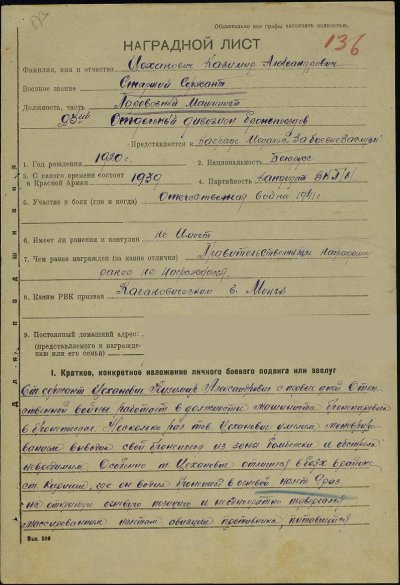 Обязательно все графы заполнять полностью.
НАГРАДНОЙ ЛИСТ
136
Фамилия, имя и отчество Цеханович Казимир Александрович
Военное звание Старший Сержант
Должность, часть Паровозный Машинист
Отдельный дивизион бронепоездов
Представляется к награде Медалью "За боевые заслуги"
1. Год рождения 1920 г. 2. Национальность Белорус
3. С какого времени состоит в Красной Армии 1939 4. Партийность Кандидат ВКП/б/
5. Участие в боях (где и когда) Отечественная война 1941 г.
6. Имеет ли ранения и контузии не Имеет
7. Чем ранее награжден (за какие отличия) Правительственными наградами
ранее не награждался
8. Каким РВК призван Кагановическом г. Минск
9. Постоянный домашний адрес:
(представляемого к награждению или его семьи)
I. Краткое, конкретное изложение личного боевого подвига или заслуг
Ст сержант Цеханович Казимир Александрович с первых дней Отече
ственной войны работает в должности машиниста бронепаровоза
в бронепоезде. Несколько раз тов. Цеханович умелым маневриро
ванием выводил свой бронепоезд из зоны бомбежки и обстрела
невредимым. Особенно т. Цеханович отличился в боях в районе
ст. Кириши, где он водил бронепоезд в огневой налет 8 раз
на открытую огневую позицию и неоднократно подвергался
массированным налетам авиации противника, пытавшейся